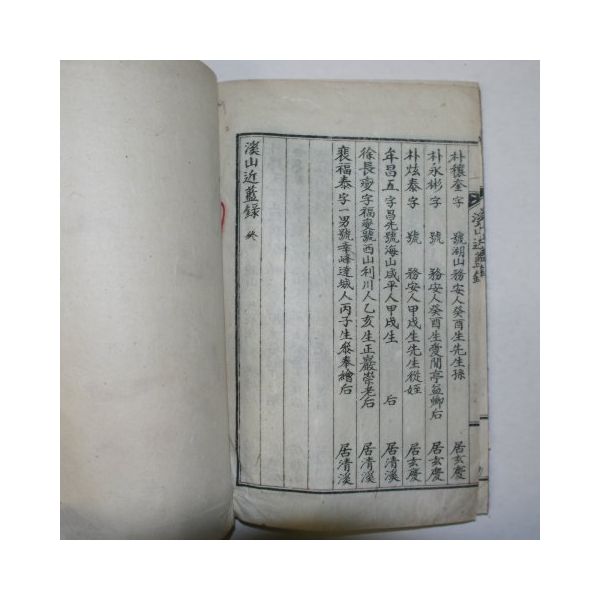 朴穰奎字 號湖山務安人癸酉生先生孫 居玄慶
朴永彬字 號 務安人癸酉生愛閒亭益卿后 居玄慶
朴炫泰字 號 務安人甲戌生先生從姪 居玄慶
牟昌五字昌先號海山咸平人甲戌生 后 居清溪
徐長燮字福燮號西山利川人乙亥生正嚴崇老后 居清溪
裵福泰字一男號峰達城人丙子生參奉繪后 居清溪
溪山近藍錄 終
溪山近藍錄